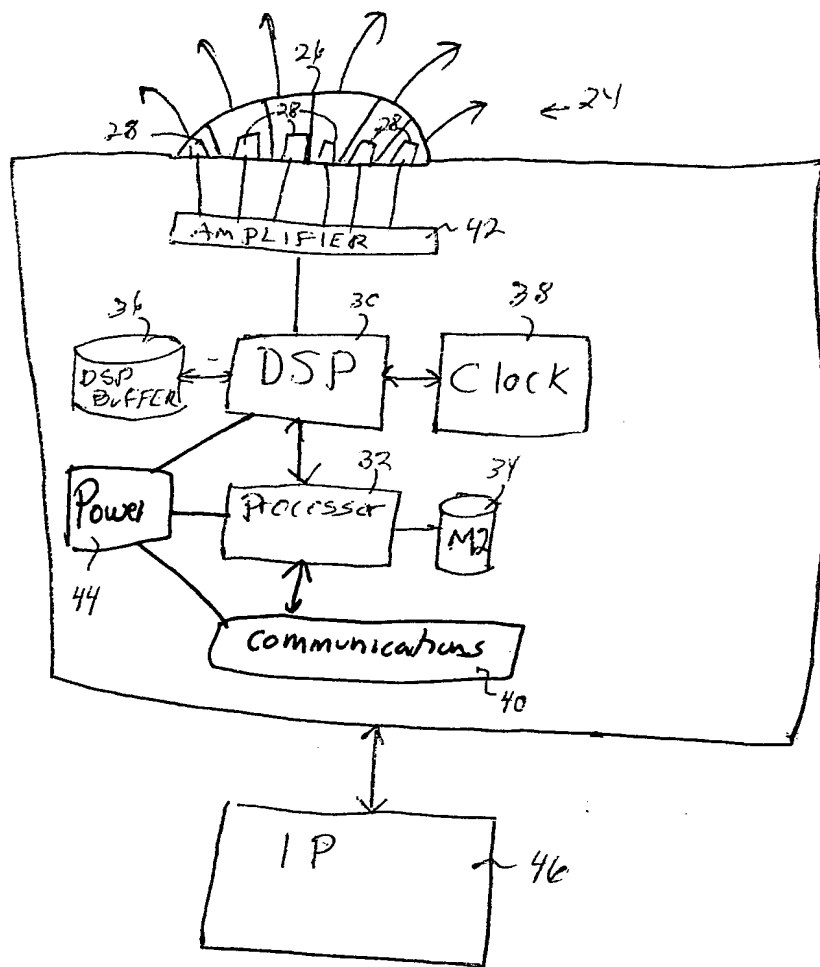 26
24
28
28
28
AMPLIFIER
42
36
30
38
DSP
BUFFER
DSP
Clock
32
34
Power
Processor
M2
44
Communications
40
IP
46